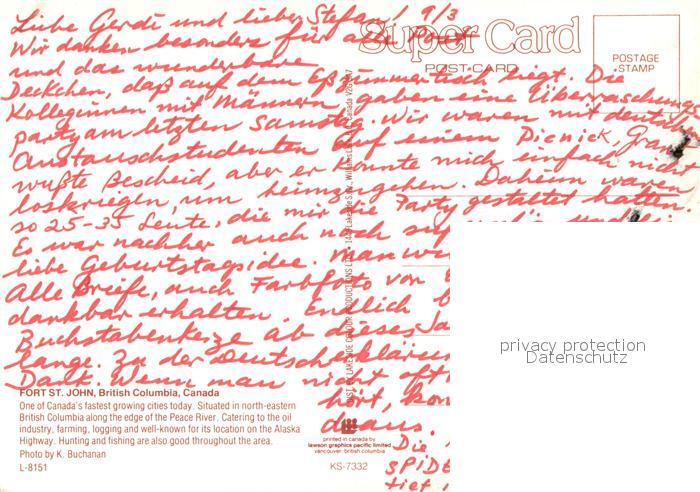 Liebe Gerdi und lieber Stefan! 9/3
Wir danken besonders für alle Post
und das wunderbare
Deckchen, daß auf dem Eßzimmertisch liegt. Die
Kolleginnen mit Männern, gaben eine Überraschungs
party am letzten Samstag. Wir waren mit deutsch
Austauschstudenten auf einem Picnick, Grant
wußte Bescheid, aber er konnte mich einfach nicht
loskriegen, um heimzugehen. Daheim waren
so 25-35 Leute, die mir die Party gestaltet hatten.
Es war nachher auch noch
liebe Geburtstagsidee. man
Alle Briefe, auch Farbfoto von
dankbar erhalten. Endlich
Buchstabenkerze ab dieses
lange. Zu der Deutsch
Dank. Wenn man nicht oft
hört,
draus.
Die
SPIDE
tief
Super Card
POST CARD
POSTAGE
STAMP
FORT ST. JOHN, British Columbia, Canada
One of Canada's fastest growing cities today. Situated in north-eastern
British Columbia along the edge of the Peace River. Catering to the oil
industry, farming, logging and well-known for its location on the Alaska
Highway. Hunting and fishing are also good throughout the area.
Photo by K. Buchanan
L-8151
printed in canada by
lawson graphics pacific limited
vancouver, british columbia
KS-7332
privacy protection
Datenschutz